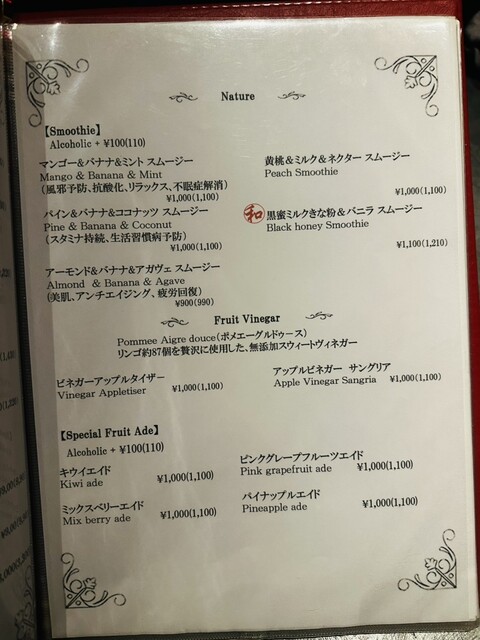 Nature
【Smoothie】
Alcoholic + ¥100(110)
マンゴー&バナナ&ミント スムージー
Mango & Banana & Mint
(風邪予防、抗酸化、リラックス、不眠症解消)
¥1,000(1,100)
黄桃&ミルク&ネクター スムージー
Peach Smoothie
¥1,000(1,100)
パイン&バナナ&ココナッツ スムージー
Pine & Banana & Coconut
(スタミナ持続、生活習慣病予防)
¥1,000(1,100)
和 黒蜜ミルクきな粉&バニラ スムージー
Black honey Smoothie
¥1,100(1,210)
アーモンド&バナナ&アガヴェ スムージー
Almond & Banana & Agave
(美肌、アンチエイジング、疲労回復)
¥900(990)
Fruit Vinegar
Pommee Aigre douce(ポメエーグルドゥース)
リンゴ約87個を贅沢に使用した、無添加スウィートヴィネガー
ビネガーアップルタイザー
Vinegar Appletiser ¥1,000(1,100)
アップルビネガー サングリア
Apple Vinegar Sangria ¥1,000(1,100)
【Special Fruit Ade】
Alcoholic + ¥100(110)
キウイエイド
Kiwi ade ¥1,000(1,100)
ピンクグレープフルーツエイド
Pink grapefruit ade ¥1,000(1,100)
ミックスベリーエイド
Mix berry ade ¥1,000(1,100)
パイナップルエイド
Pineapple ade ¥1,000(1,100)